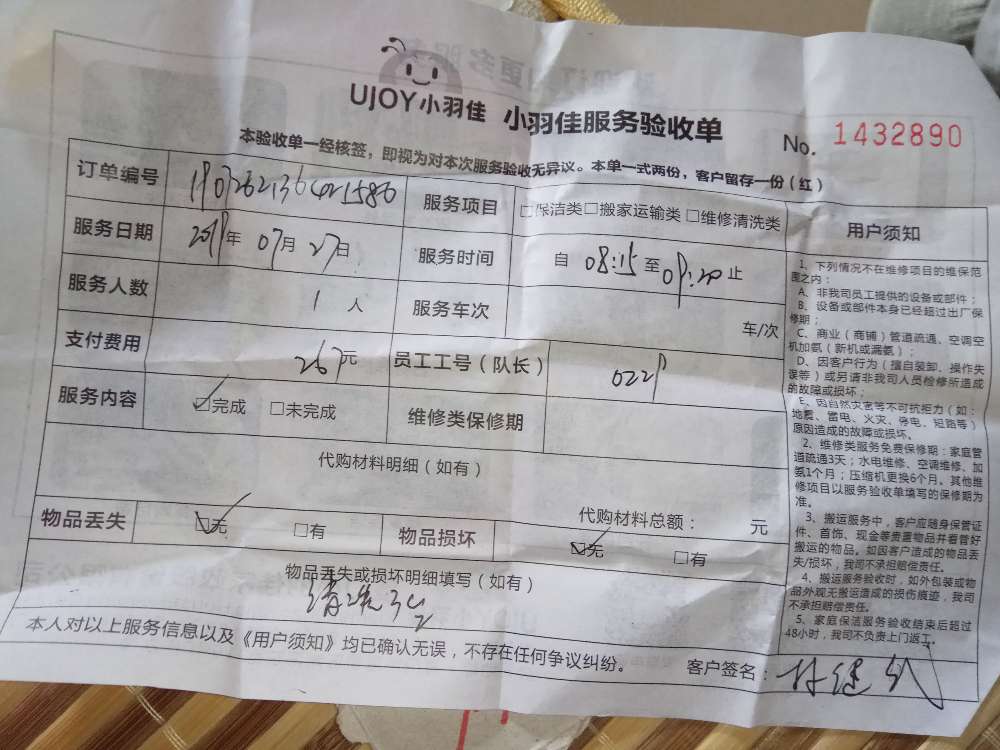 UJOY小羽佳 小羽佳服务验收单
No. 1432890
本验收单一经核签，即视为对本次服务验收无异议。本单一式两份，客户留存一份（红）
订单编号
服务项目 □保洁类□搬家运输类□维修清洗类
服务日期 2019年 07月 27日 服务时间 自 08:15 至 09:20 止
服务人数 1 人 服务车次 车/次
支付费用 267元 员工工号（队长） 0229
服务内容 ☑完成 □未完成 维修类保修期
代购材料明细（如有）
代购材料总额： 元
物品丢失 ☑无 □有 物品损坏 ☑无 □有
物品丢失或损坏明细填写（如有）
本人对以上服务信息以及《用户须知》均已确认无误，不存在任何争议纠纷。 客户签名：
用户须知
1、下列情况不在维修项目的维保范
围之内：
A、非我司员工提供的设备或部件；
B、设备或部件本身已经超过出厂保
修期；
C、商业（商铺）管道疏通、空调空
机加氨（新机或漏氨）；
D、因客户行为（擅自装卸、操作失
误等）或另请非我司人员检修所造成
的故障或损坏；
E、因自然灾害等不可抗拒力（如：
地震、雷电、火灾、停电、短路等）
原因造成的故障或损坏。
2、维修类服务免费保修期：家庭管
道疏通3天；水电维修、空调维修、加
氨1个月；压缩机更换6个月。其他维
修项目以服务验收单填写的保修期为
准。
3、搬运服务中，客户应随身保管证
件、首饰、现金等贵重物品并看管好
搬运的物品。如因客户造成的物品丢
失/损坏，我司不承担赔偿责任。
4、搬运服务验收时，如外包装或物
品外观无搬运造成的损伤痕迹，我司
不承担赔偿责任。
5、家庭保洁服务验收结束后超过
48小时，我司不负责上门返工。